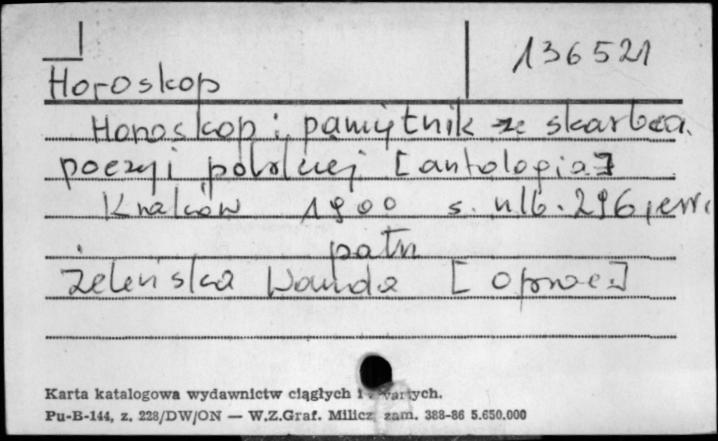 136521
Horoskop
Horoskop i pamiętnik ze skarbca
poezyi polskiej [antologia]
Kraków 1900 s. nlb. 296,
patr
Żeleńska Wanda [oprac]
Karta katalogowa wydawnictw ciągłych i zwartych.
Pu-B-144, z. 228/DW/ON — W.Z.Graf. Milicz zam. 388-86 5.650.000